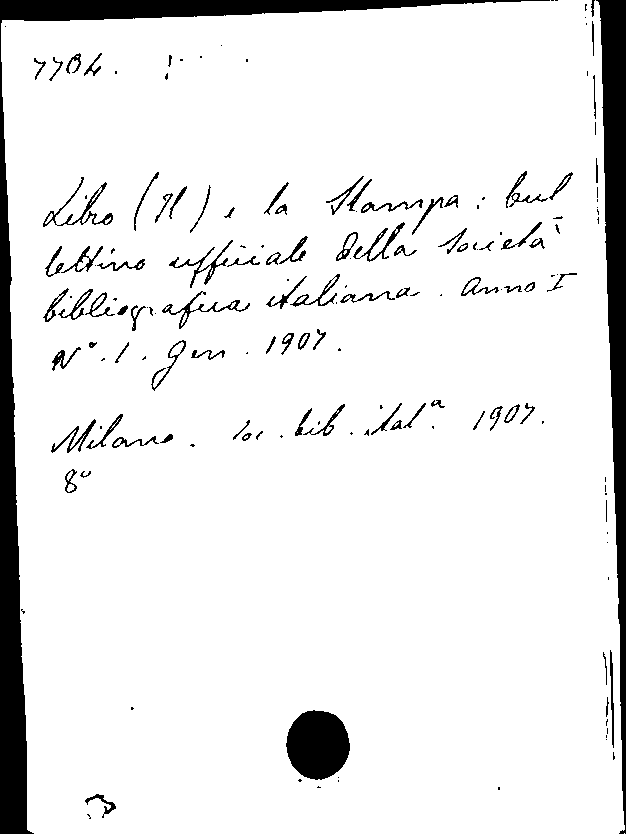 7704.
Libro (Il) e la Stampa: bul
lettino ufficiale della Società
bibliografica italiana. Anno I
N°. 1. Gen. 1907.
Milano. Soc. bib. ital.ª 1907.
8°